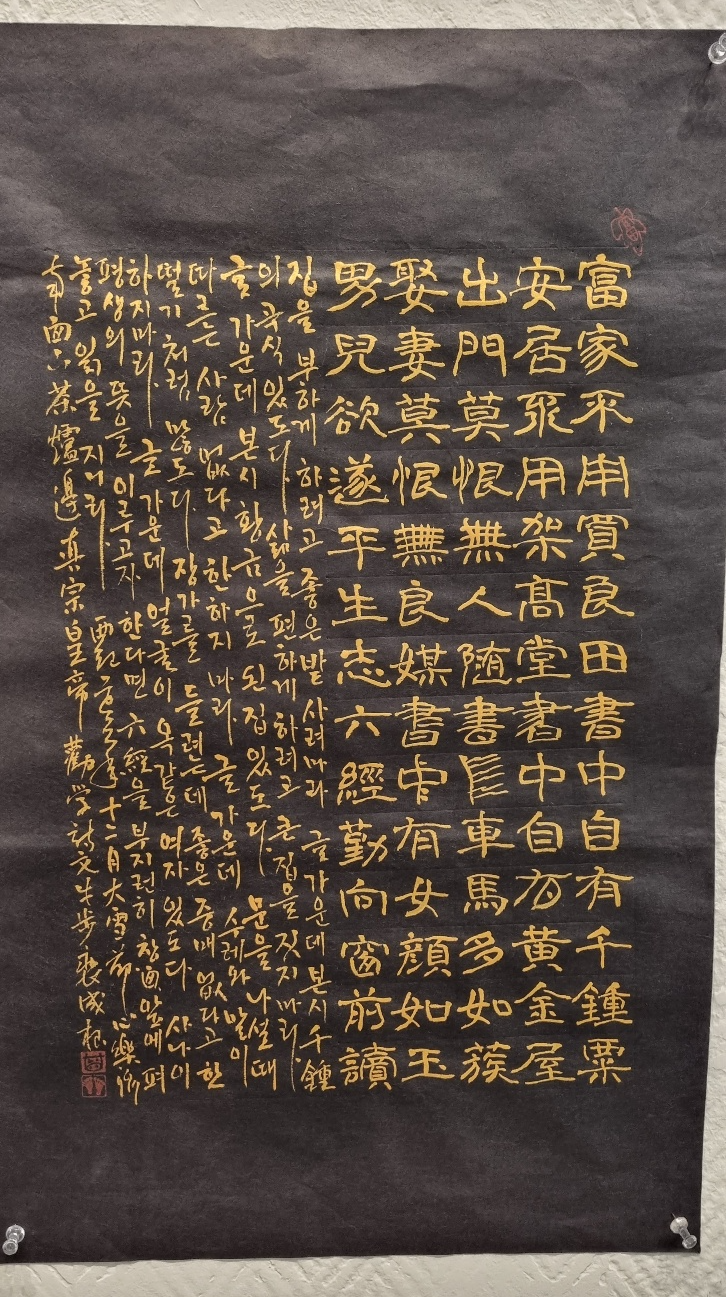 富家不用買良田書中自有千鍾粟
安居不用架高堂書中自有黃金屋
出門莫恨無人随書中車馬多如簇
娶妻莫恨無良媒書中有女顔如玉
男兒欲遂平生志六經勤向窗前讀
집을 부하게 하려고 좋은 밭 사려마라 글 가운데 본시 千鍾
의 곡식 있도다 삶을 편하게 하려고 큰 집을 짓지 마라
글 가운데 본시 황금으로 된 집 있도다 문을 나설 때
따르는 사람 없다고 한하지 마라 글 가운데 수레와 말이
떨기처럼 많도다 장가를 들려는데 좋은 중매 없다고 한
하지마라 글 가운데 얼굴이 옥같은 여자 있도다 사나이
평생의 뜻을 이루고자 한다면 六經을 부지런히 창 앞에 펴
놓고 읽을지니라 十二月大雪節 心樂
南窗下茶爐邊真宗皇帝勸学詩文牛步裵成根